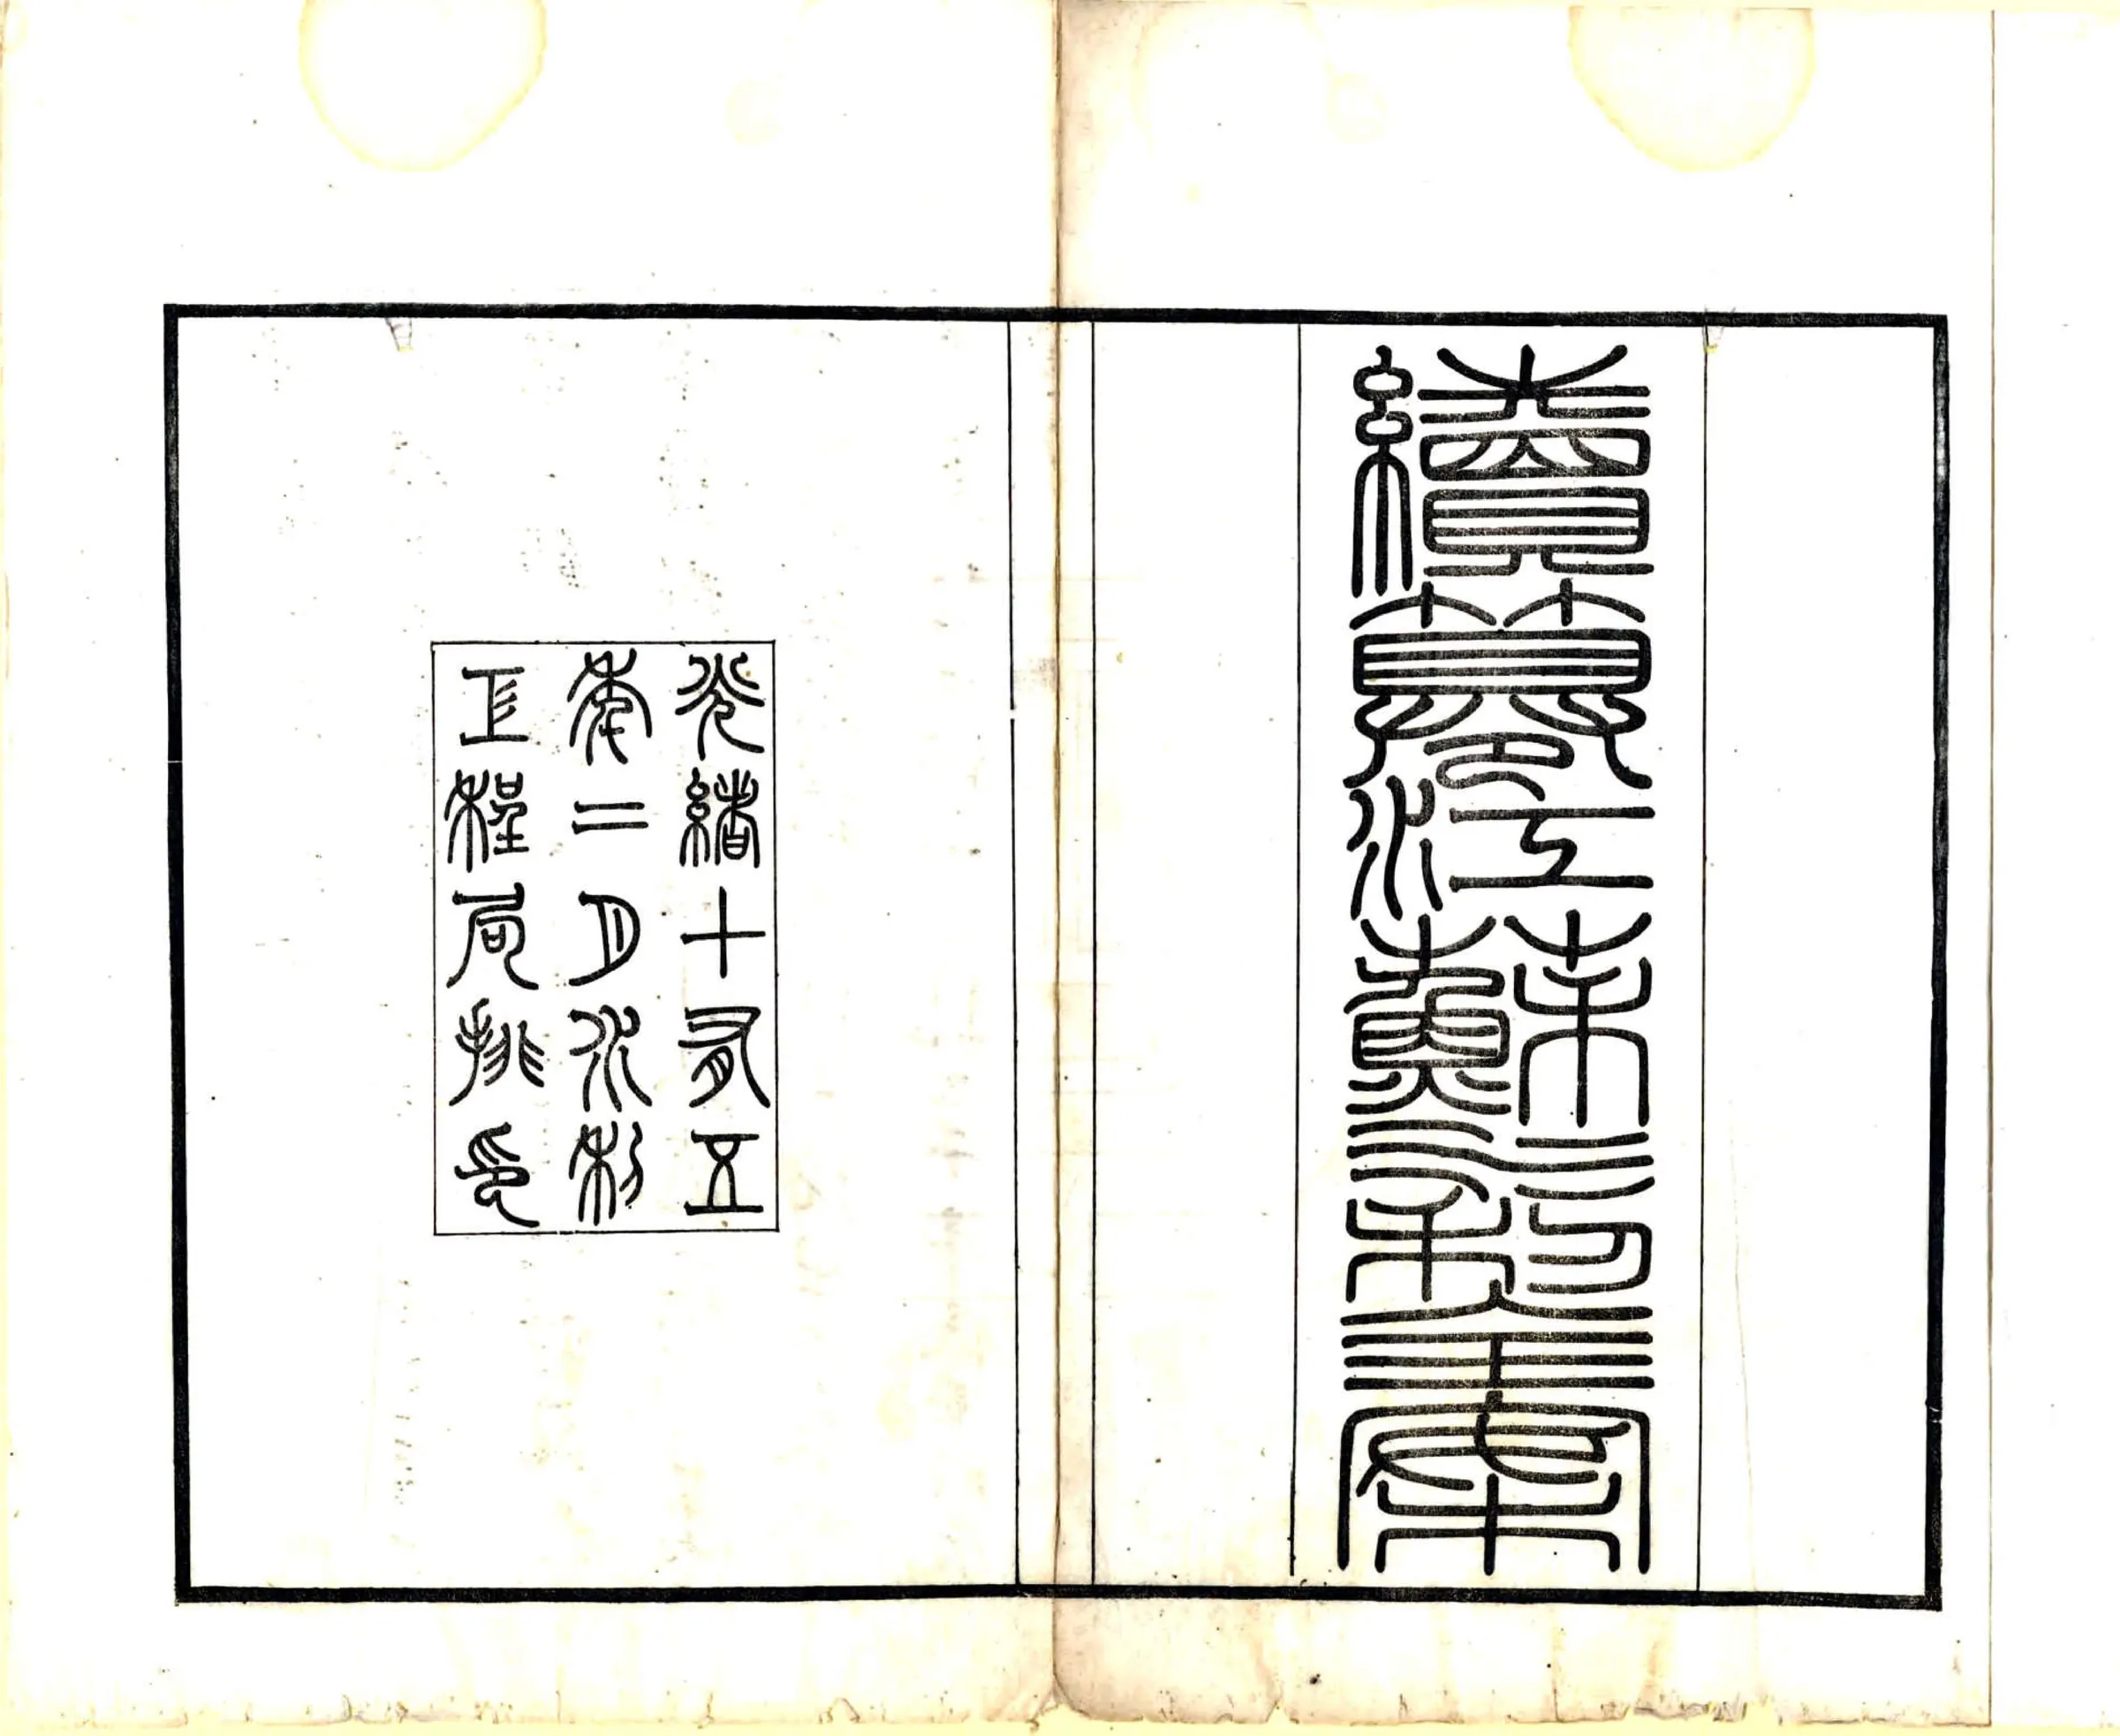 續纂江蘇水利全案
光緒十有五
年二月水利
工程局排印